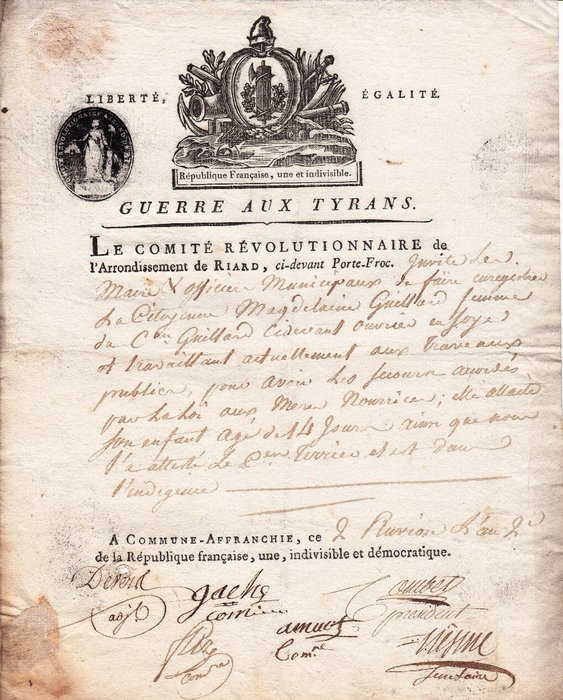 LIBERTÉ, ÉGALITÉ.
République Française, une et indivisible.
GUERRE AUX TYRANS.
LE COMITÉ RÉVOLUTIONNAIRE de
l'Arrondissement de RIARD, ci-devant Porte-Froc. Invite les
Maire & officier Municipaux de faire enregistrer
la Citoyenne Magdelaine Guillard femme
du Cen Guillard Cidevant ouvrier en soye
et travaillant actuellement aux Travaux
publics, pour avoir les secours accordés
par la loi aux Mere Nourrice; elle allaite
son enfant agé de 14 Jours ainsi que nous
l'a attesté le Cen Terrier et est dans
l'indigence
A COMMUNE-AFFRANCHIE, ce 2 Pluviose L'an 2e
de la République française, une, indivisible et démocratique.
adjt
président
Comre
secretaire